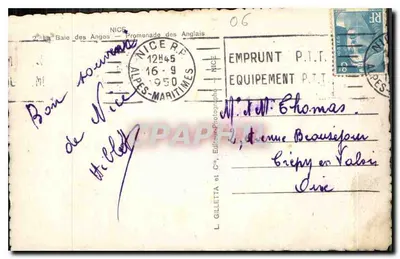 06
NICE
2 - La Baie des Anges - Promenade des Anglais
NICE R.P.
12H45
16 - 9
1950
ALPES-MARITIMES
EMPRUNT P.T.T.
EQUIPEMENT P.T.T.
RF
Bon souvenir
de Nice
L. GILLETTA et Cie, Editeurs
NICE
Mr et Mme Thomas
4, Avenue Beauséjour
Crépy en Valois
Oise